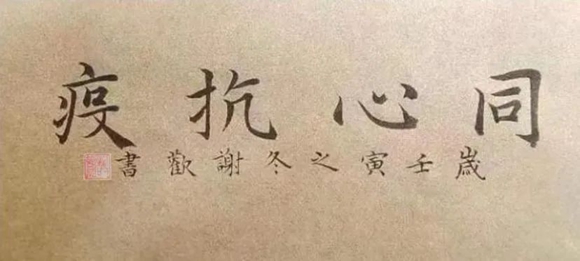 同心抗疫
歲壬寅之冬謝歡書